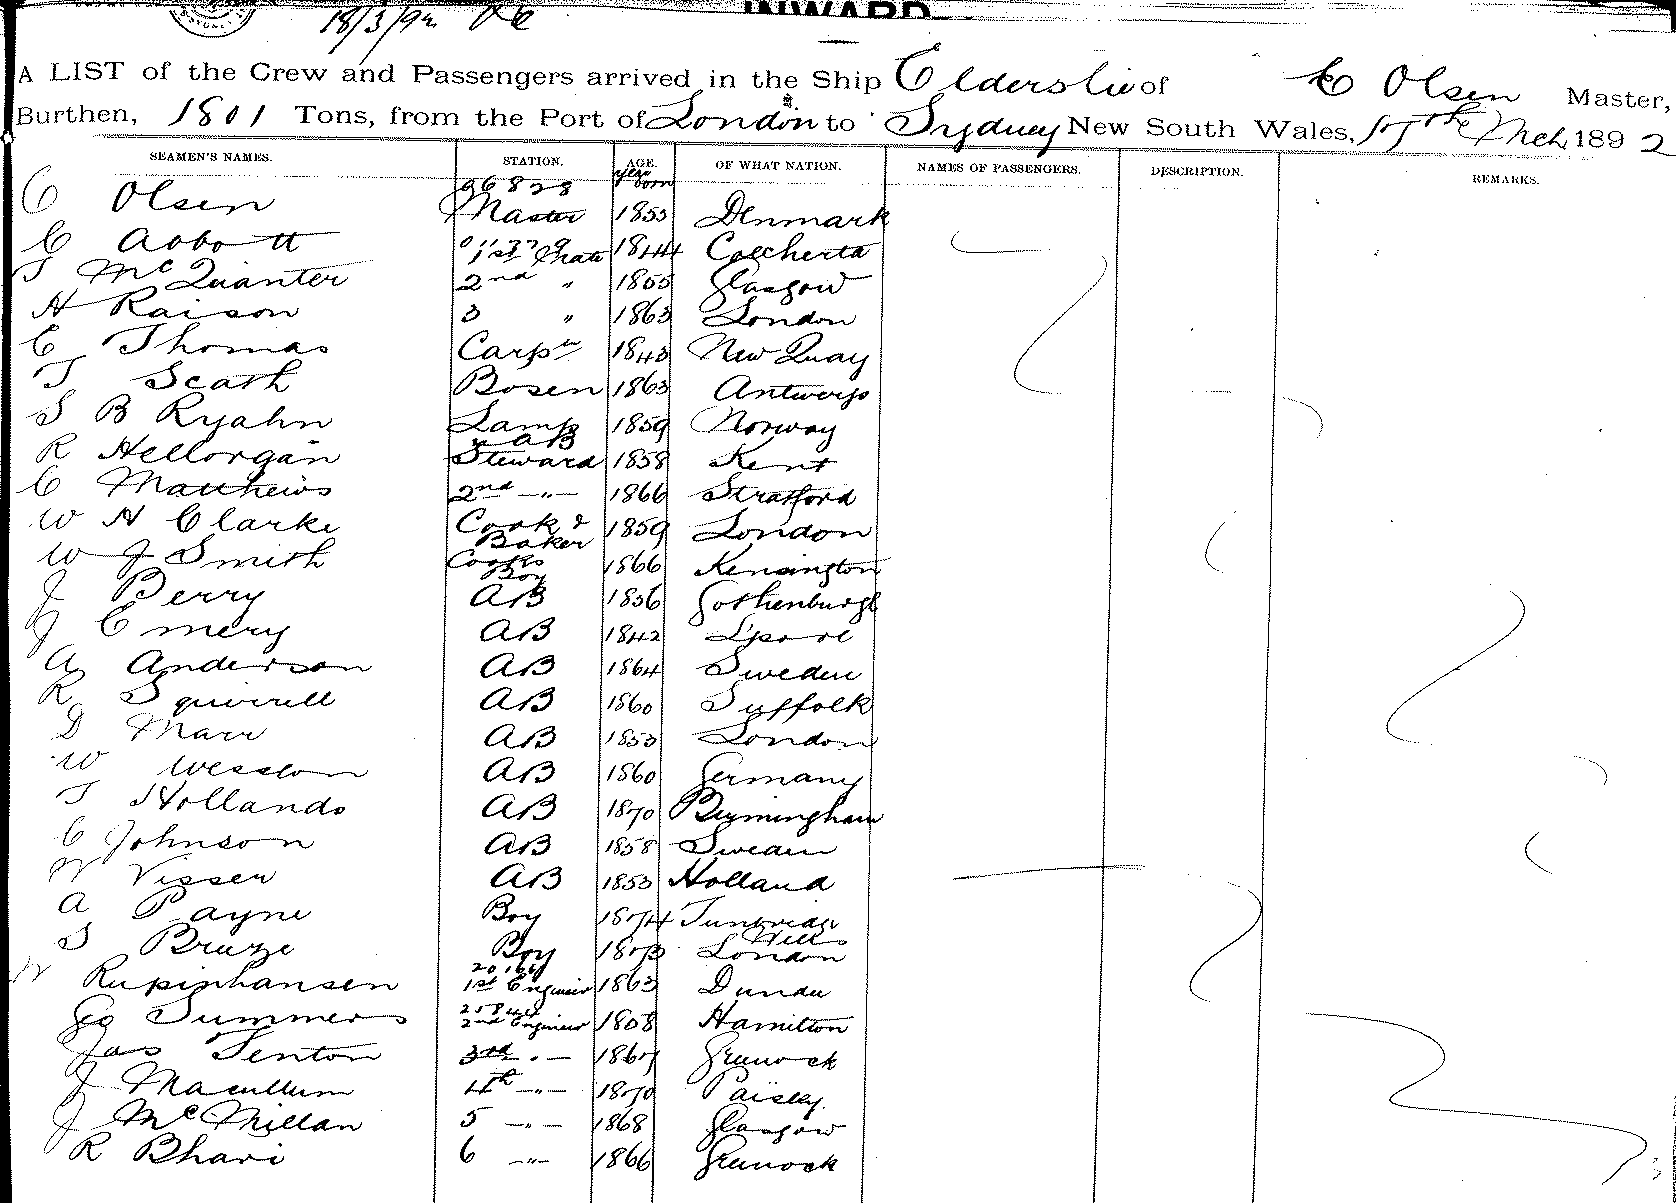 18/3/92
INWARD
A LIST of the Crew and Passengers arrived in the Ship Elderslie of C Olsen Master,
Burthen, 1801 Tons, from the Port of London to Sydney New South Wales, 17th Mch 1892
SEAMEN'S NAMES. STATION. AGE. year born OF WHAT NATION. NAMES OF PASSENGERS. DESCRIPTION. REMARKS.
C Olsen 96828 Master 1855 Denmark
C Abbott 1st Mate 1844
T McQuanter 2nd " 1855 Glasgow
H Raison 3 " 1863 London
C Thomas Carptr 1843 New Quay
T Scath Bosen 1863 Antwerp
S B Ryahn Lamp & AB 1859 Norway
R Hellorgan Steward 1858 Kent
C Matthews 2nd -"- 1866 Stratford
W H Clarke Cook & Baker 1859 London
W J Smith Cooks Boy 1866 Kensington
J Berry AB 1856 Gothenburgh
J Emery AB 1842
A Anderson AB 1864 Sweden
R Squirrell AB 1860 Suffolk
D Marr AB 1853 London
W Wesslom AB 1860 Germany
T Hollands AB 1870 Birmingham
C Johnson AB 1858 Sweden
Visser AB 1853 Holland
A Payne Boy 1874 Tunbridge Wells
S Bruze Boy London
Rupinhansen 1st Engineer 1863 Dundee
Geo Summers 2nd Engineer 1858 Hamilton
Jas Fenton 3rd -"- 1867 Greenock
J Macullum 4th -"- 1870 Paisley
J McMillan 5 -"- 1868 Glasgow
R Bhari 6 -"- 1866 Greenock